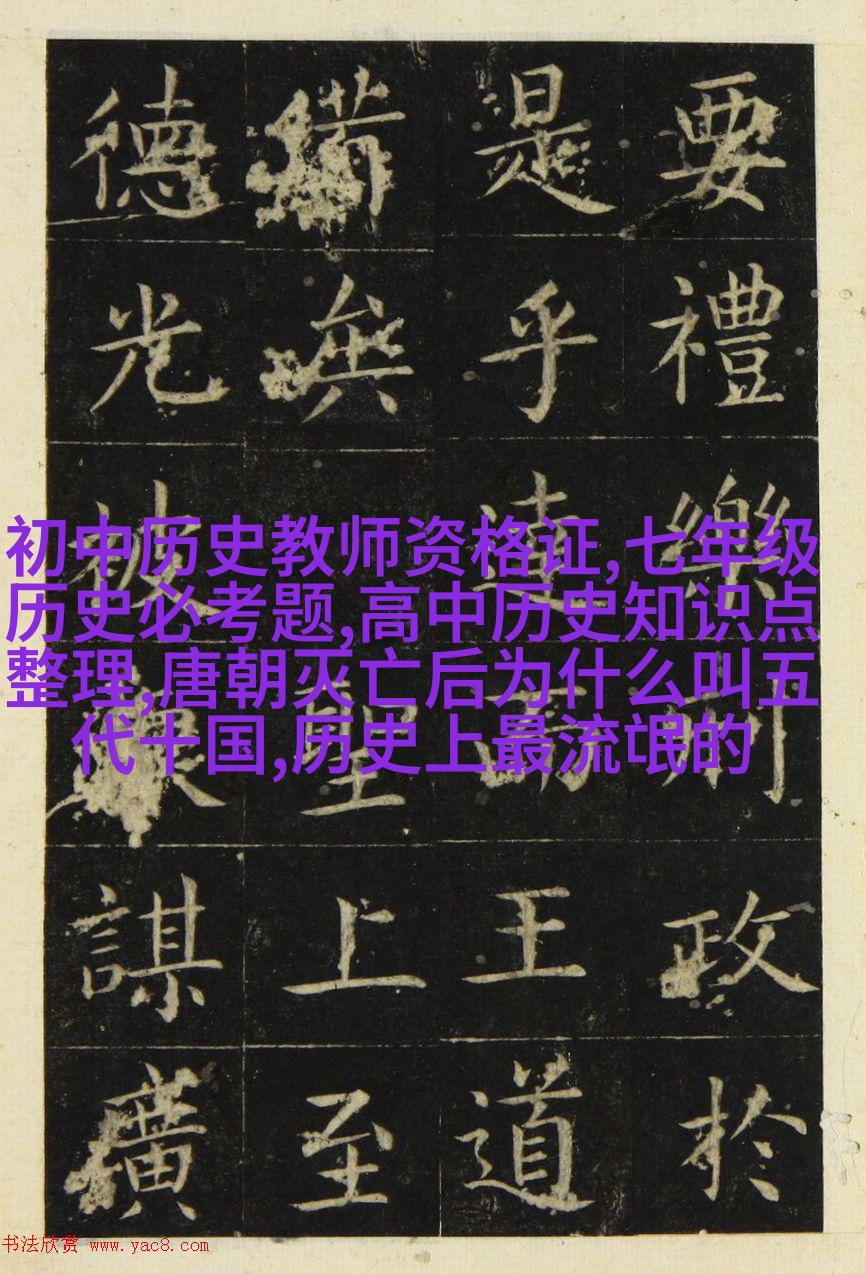 要禮樂刑政於
是乎達而王道
備無聖上至
德光被謀廣
初中历史教师资格证,七年级
历史必考题,高中历史知识点
整理,唐朝灭亡后为什么叫五
代十国,历史上最流氓的
书法欣赏 www.yac8.com